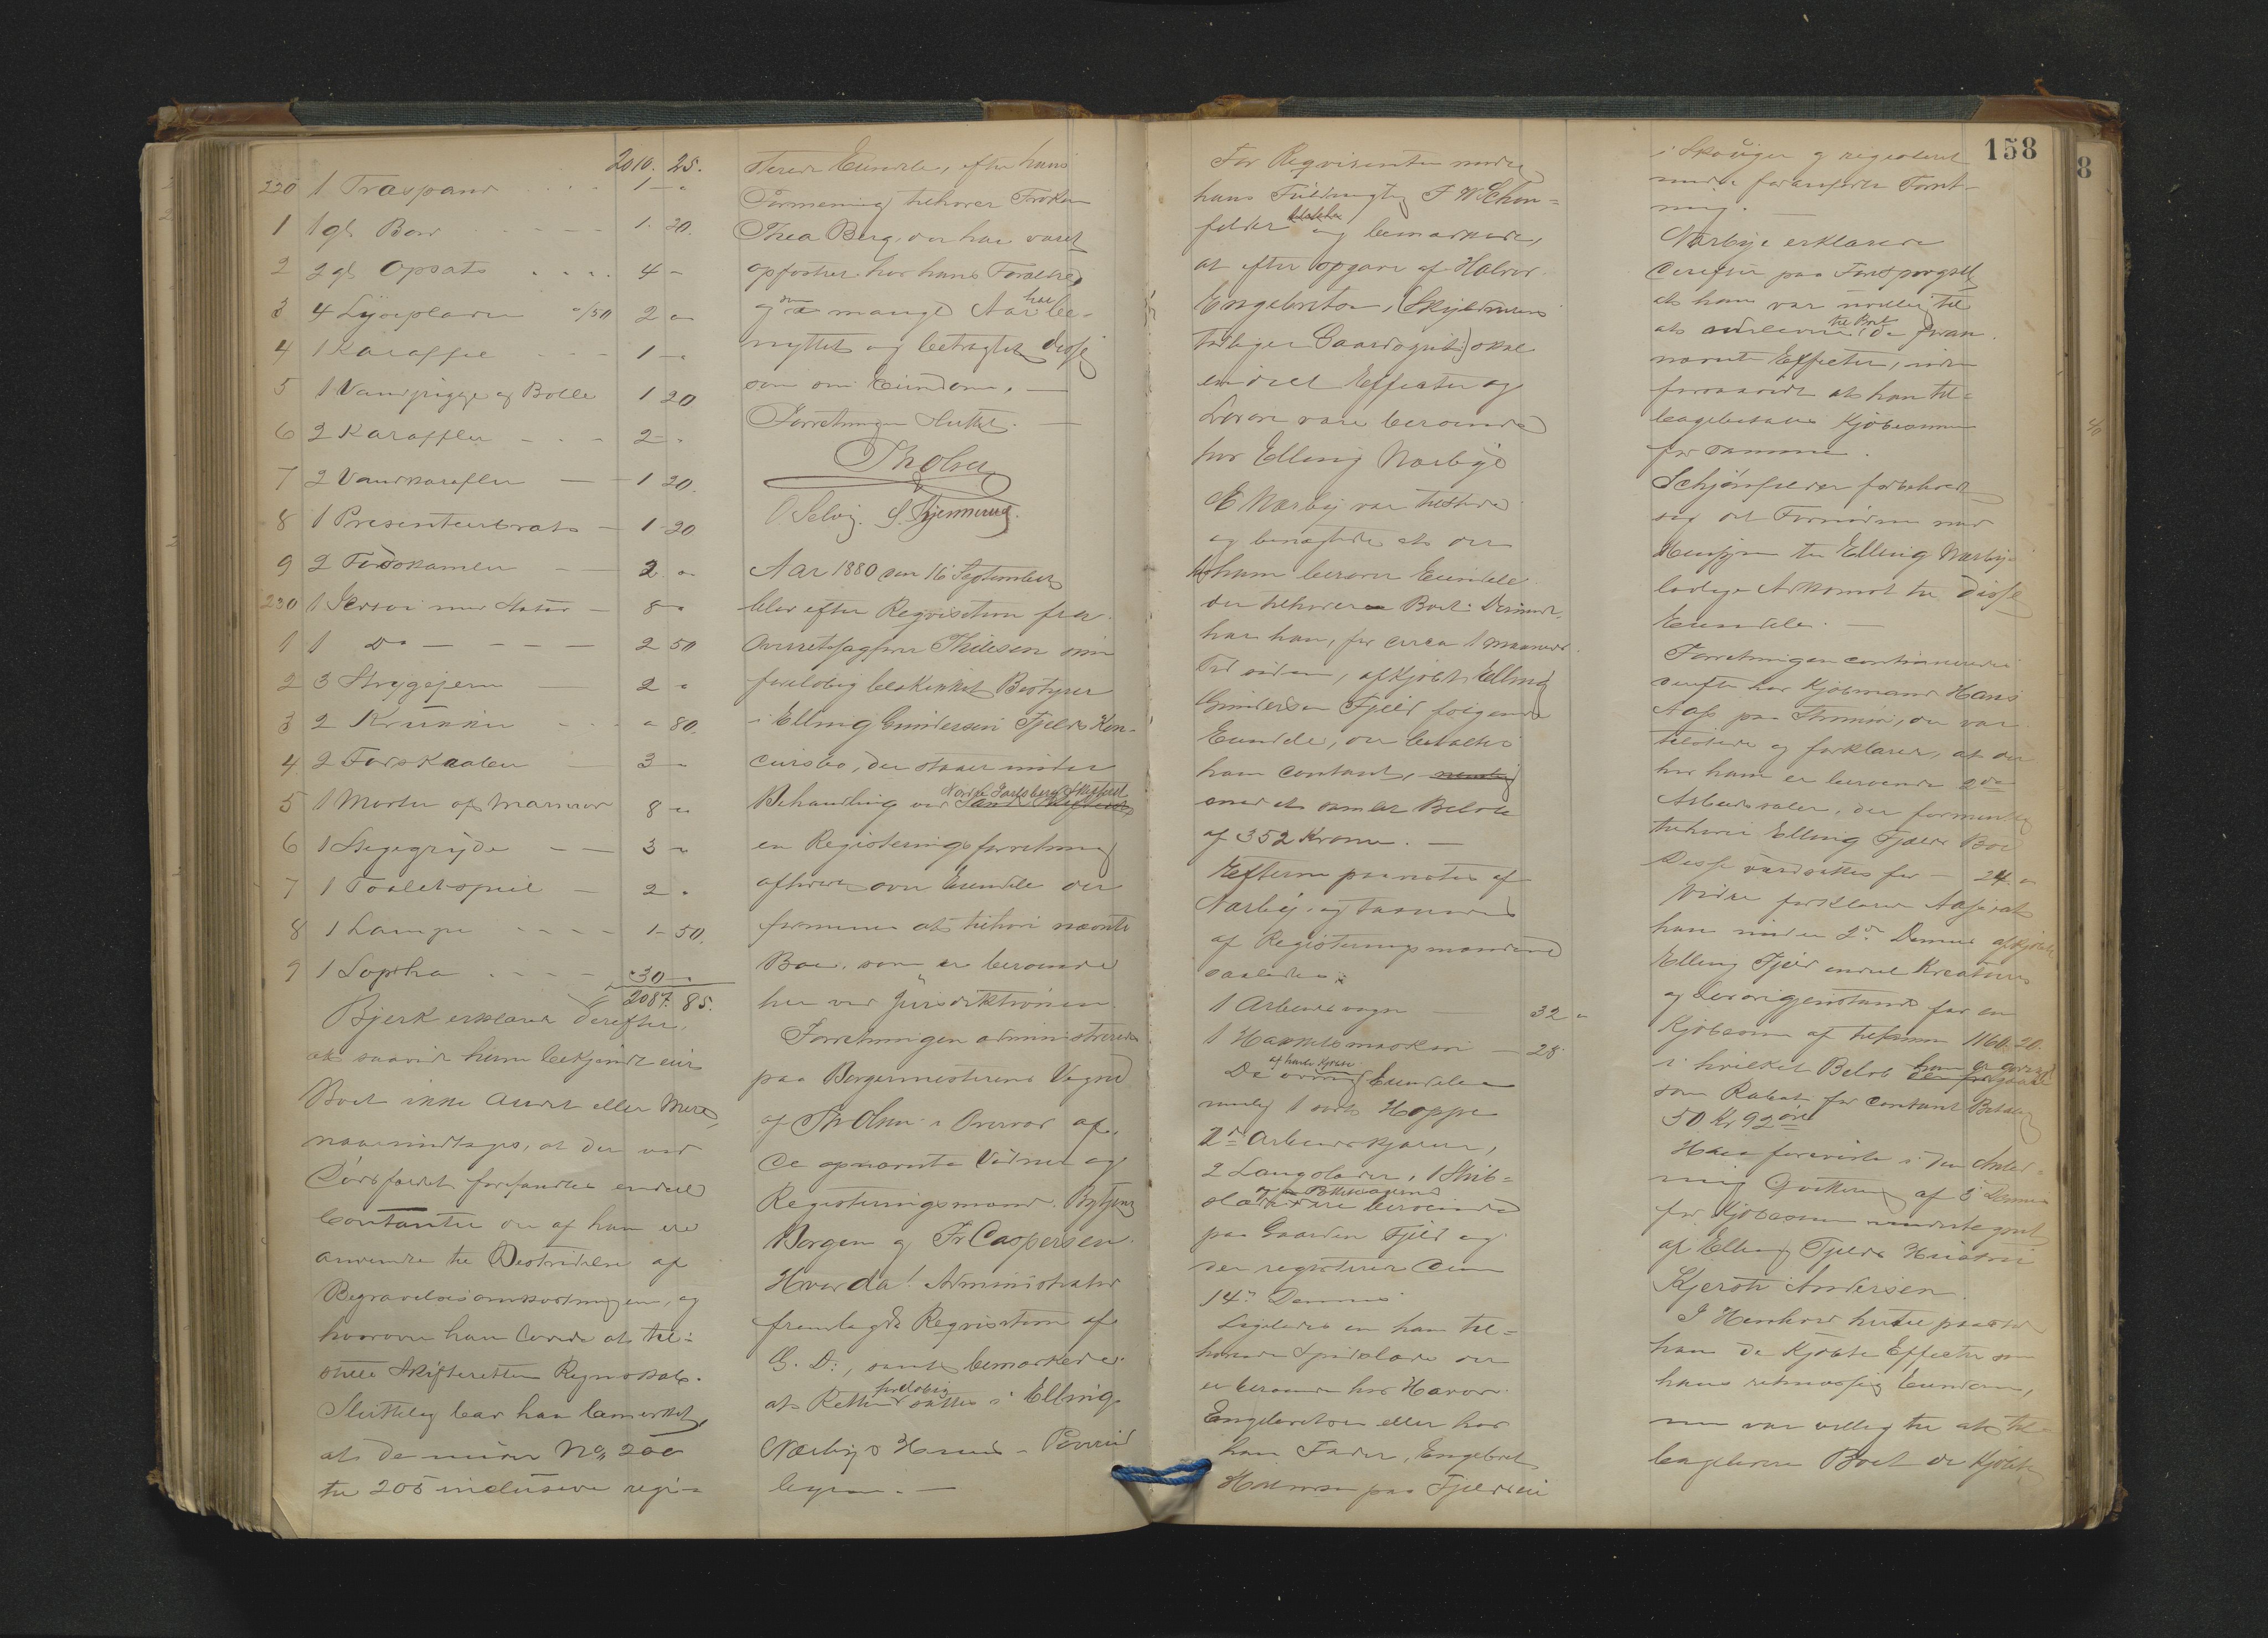 2010. 25.
220 1 Træspand 1 "
1 1 gl. Bord 1. 20.
2 2 gl Opsats 4 -
3 4 Lyseplader a/50 2 "
4 1 Karaffel 1 "
5 1 Vandmugge og Bolle 1 20
6 2 Karaffler 2 "
7 2 Vandkarafler 1 20.
8 1 Presenteerbrat 1 20
9 2 2 "
230 1 Servi med Stativ 8 "
1 1 Do 2 50
2 3 Strygejern 2 "
3 2 Krukker " 80.
4 2 Farskaaler 3 "
5 1 Morter af Marmor 8 "
6 1 Stegegryde 3 "
7 1 Toiletspeil 2 "
8 1 Lampe 1 50.
9 1 Sopha 30 "
2087. 85.
Bjerk erklærede derefter,
at saavidt ham bekjendt eier
Boet ikke Andet eller Mere,
naarundtages, at der ved
Dødsfaldet forefandtes endeel
Contanter der af ham ere
anvendte til Bestridelse af
Begravelsesomkostningerne, og
hvorover han lovede at til-
stille Skifteretten Regnskab.
Sluttelig bad han bemærket,
at de under No 200
til 205 inclusive regi-
sterede Eiendele, efter hans
Formening tilhører Frøken
Thea Berg, der har været
opfostret hos hans Forældre,
og som i mange Aar har be-
nyttet og betragtet disse
som sin Eiendom. —
Forretningen sluttet. —
Th Olsen
O Selvig. S. Kjennerud.
Aar 1880 den 16 September
blev efter Requisition fra
Overretssagfører Thilesen som
foreløbig beskikket Bestyrer
i Elling Gundersen Fjelds Kon-
cursbo, der staaer under
Behandling ved Nordre Jarlsberg Skifteret
en Registeringsforretning
afholdt over Eiendele der
formenes at tilhøre nævnte
Bo, som er beroende
her ved Jurisdiktionen.
Forretningen administreredes
paa Borgermesterens Vegne
af Th Olsen i Overvær af
de opnævnte Vidner og
Registeringsmænd. Bytjener
Borgen og Fr Caspersen
Hvorda! Administrator
fremlagde Requisition af
G. D:, samt bemærkede
at Retten foreløbig sattes i Elling
Nærbyes Huus i
For Requirenten mødte
hans Fuldmægtig F W Schøn-
felder og bemærkede,
at efter Opgave af Halvor
Engebretsen, (Skyldnerens
tidligere Gaardsgut) skal
endeel Effecter og
Løsøre være beroende
hos Elling Nærbye
E Nærby var tilstede
og benægtede at der
hos ham beroer Eiendele
der tilhører Boet. Derimod
har han, for circa 1 Maaneds
Tid siden, afkjøbt Elling
Gundersen Fjeld følgende
Eiendele, der betaltes
ham contant,
med et samlet Beløb
af 352 Kroner. —
Efterne paavistes af
Nærby, og taxeredes
af Registeringsmændene
saaledes:
1 Arbeidsvogn 32 "
1 Hakkelsmaskine 28.
De øvrige af ham kjøbte Eiendele
nemlig 1 sort Hoppe
2de Arbeidskjærrer,
2 Langslæder, 1 Stub-
slæde ere beroende
paa Gaarden Fjeld og
der registreret den
14de Dennes.
Ligeledes en ham til-
hørende Spidsslæde der
er beroende hos Halvor
Engebretsen eller hos
hans Fader, Engebret
Halvorsen paa Fjeldseie
158
i Skouger og registeret
under foranførte Forret-
ning. —
Nærbye erklærede
derefter paa Forespørgsel
at han var uvillig til
at udlevere til Boet de foran-
nævnte Effecter, uden
forsaavidt at han til-
bagebetales Kjøbesummen
for samme.
Schjønfelder forbeholdt
sig det Fornødne med
Hensyn til Elling Nærbys
lovlige Adkomst til disse
Eiendele. —
Forretningen continueredes
derefter hos Kjøbmand Hans
Aas paa Strømsø, der var
tilstede og forklarede, at der
hos ham er beroende 2de
Arbeidssæler, der formentlig
tilhører Elling Fjelds Bo
Disse værdsattes for — 24. "
Videre forklarede Aas, at
han under 2den Dennes afkjøbte
Elling Fjeld endeel Kreaturer
og Løsøregjenstande for en
Kjøbesum af tilsammen 1160. 20.
i hvilket Beløb
som Rabat for contant Betaling
50 Kr 92 øre
Han foreviste i den Anled-
ning Qvittering af 3 Dennes
for Kjøbesummen undertegnet
af Elling Fjelds Hustru
Kjersti Andersen.
I Henhold hertil paastod
han de kjøbte Effecter som
hans retmæssige Eiendom,
men var villig til at til-
bagelevere Boet de kjøbte